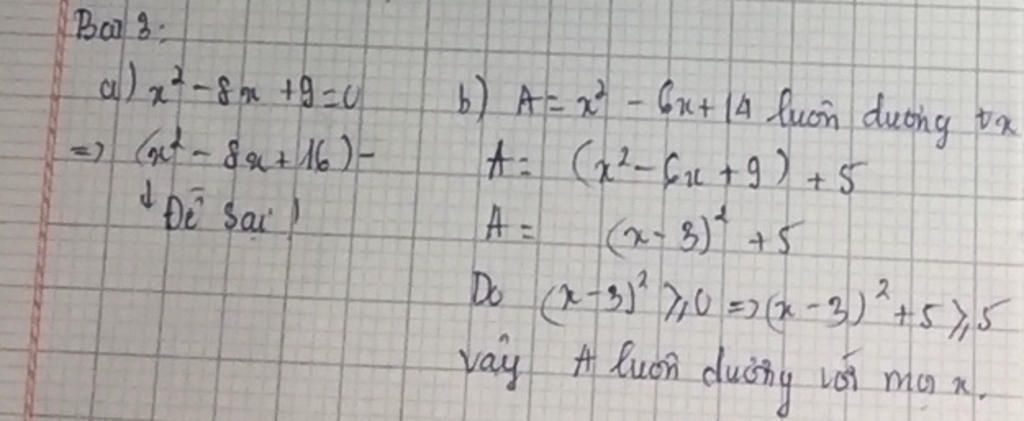 Bài 3:
a) x² - 8x + 9 = 0
=> (x² - 8x + 16) -
↓ Đề sai!
b) A = x² - 6x + 14 luôn dương ∀x
A = (x² - 6x + 9) + 5
A = (x - 3)² + 5
Do (x - 3)² ⩾ 0 => (x - 3)² + 5 ⩾ 5
vậy A luôn dương với mọi x.